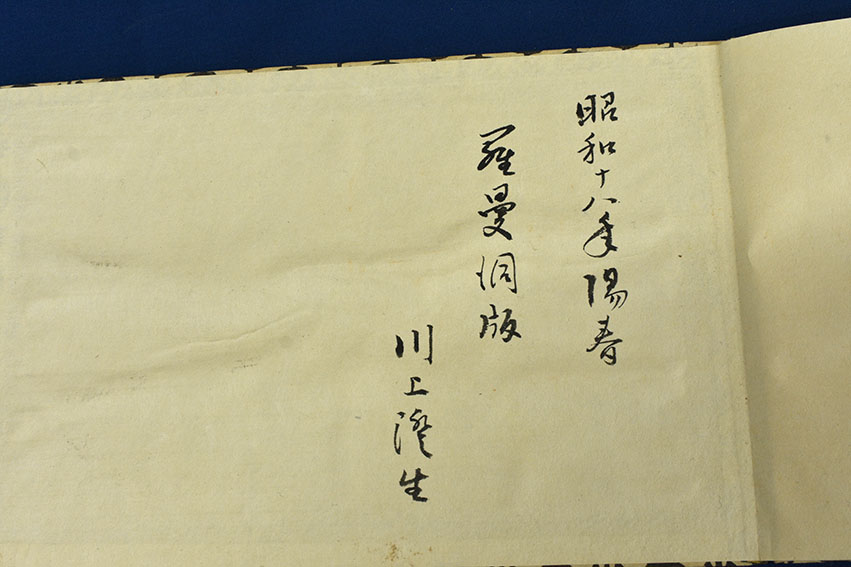 昭和十八年陽春
羅曼洞版
川上澄生